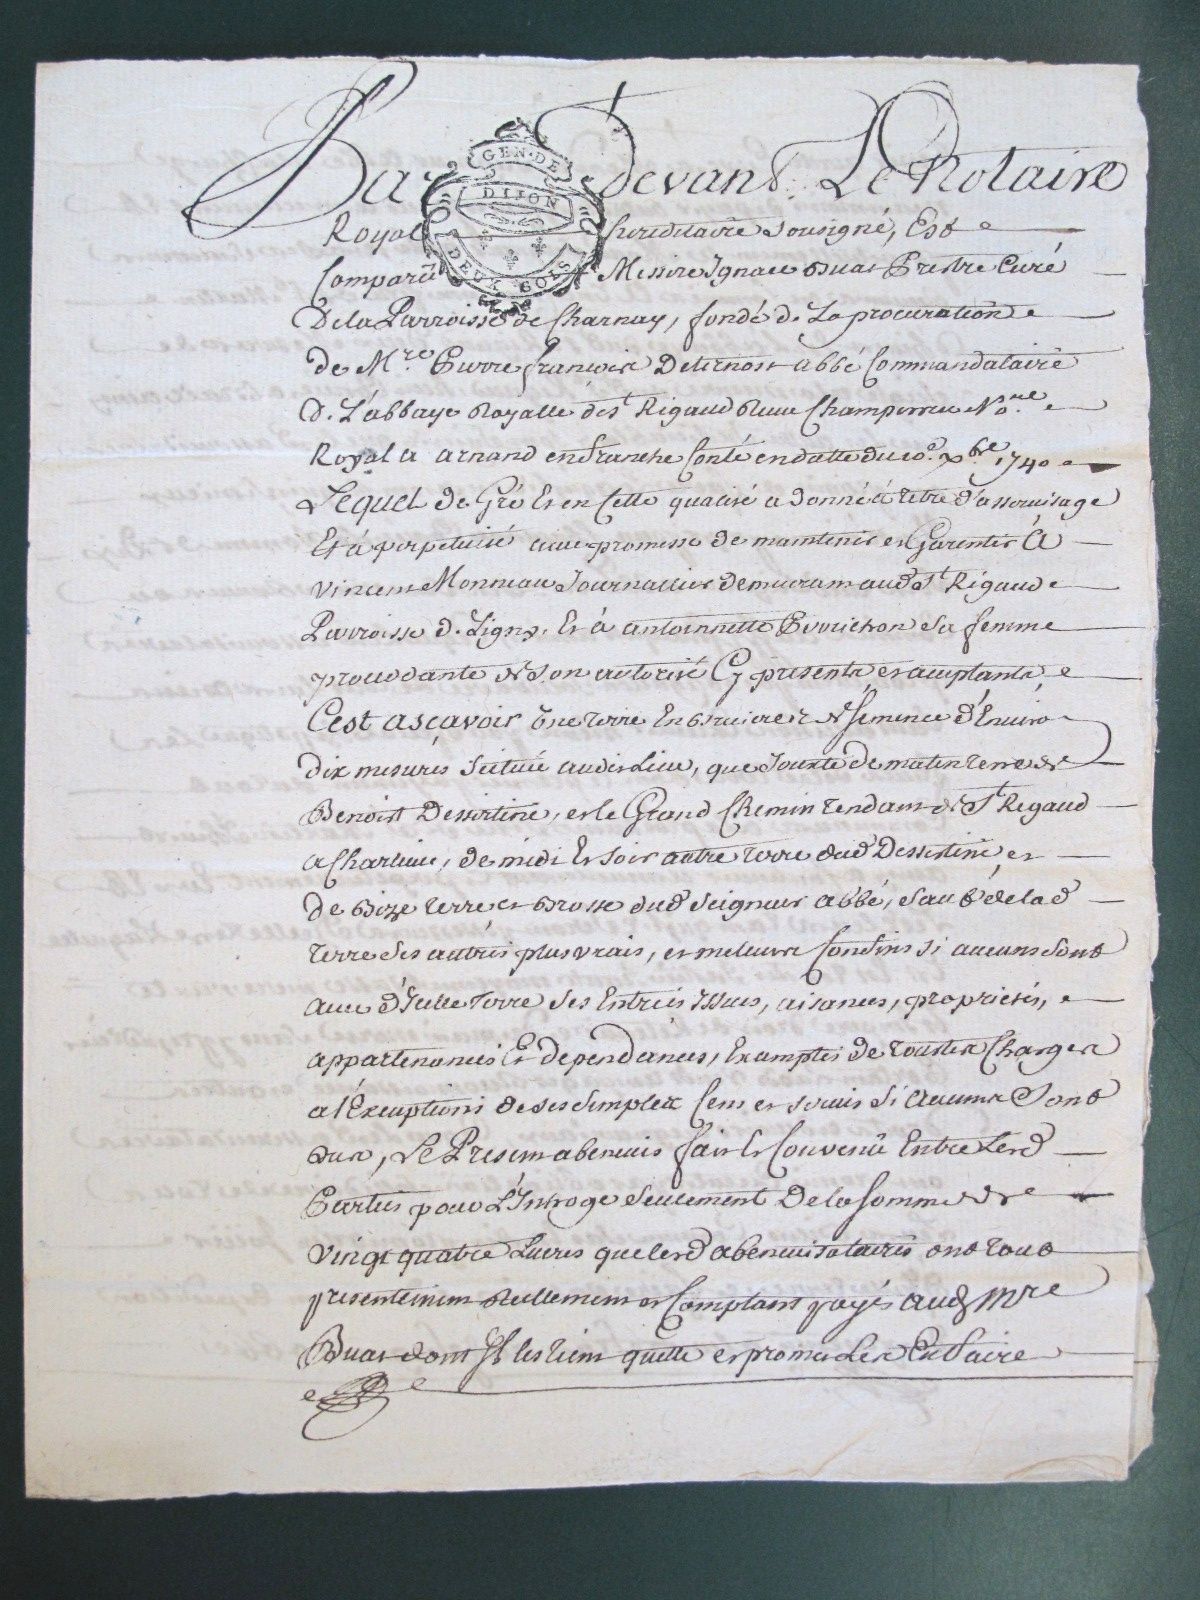 Par devant Le Notaire
GEN · DE
DIJON
DEUX SOLS
Royal hereditaire Sousigné, Est
Comparû Messire Ignace Buat Prestre Curé
De la Parroisse de Charnay, fondé de La procuration
de Mre. Pierre francois Deternost abbé Commandataire
De L'abbaye Royalle de st Rigaud Reüe Nore.
Royal a en franche Conté en datte du 10e. xbre 1740
Lequel de Gré Et en Cette qualité a donné a titre d'assensage
Et a perpetuité avec promesse de maintenir et Garentir A
vincent Monneau Journallier demeurant aud St Rigaud
Parroisse de Ligny, Et a antoinnette sa femme
procedante de Son autorité Cy presents et acceptants
Cest ascavoir Une terre En bruieres de Semence d'Enviro
dix mesures Scituée audit Lieu, que Jouxte de matin terre de
Benoist Dessertine, et le Grand Chemin tendant de St Regaud
a Charlieu, de midi Et soir autre terre dud Dessertine et
de Bize terre et Brosse dud Seigneur abbé, sauf de lad
terre ses autres plus vrais, et meleurs Confins si aucuns sont
avec d'Icelle terre ses Entrées Issues, aisances, proprietés,
appartenances Et dependances, Examptes de toutes Charges
a l'Exceptions de ses simples Cens et servis Si aucuns Sont
dus, Le Present abeneuis fait Et Convenû Entre Lesd
Parties pour L'Introge seulement De la Somme de
vingt quatre Livres que lesd abeneuisataires ont tout
presentement Reellement et Comptant payés aud Mre
Buat dont Il les tient quitte et promet Les En faire